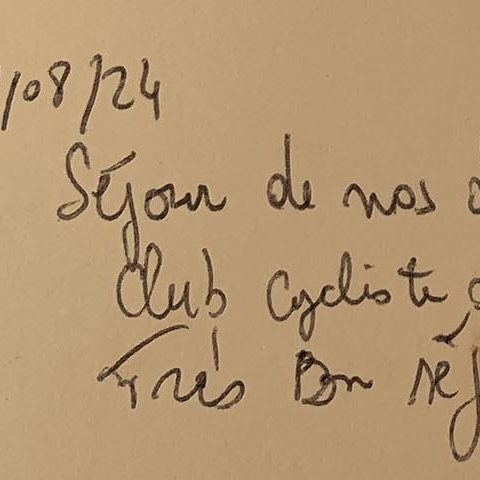 /08/24
Séjour de nos
Club Cycliste
Très Bon séj